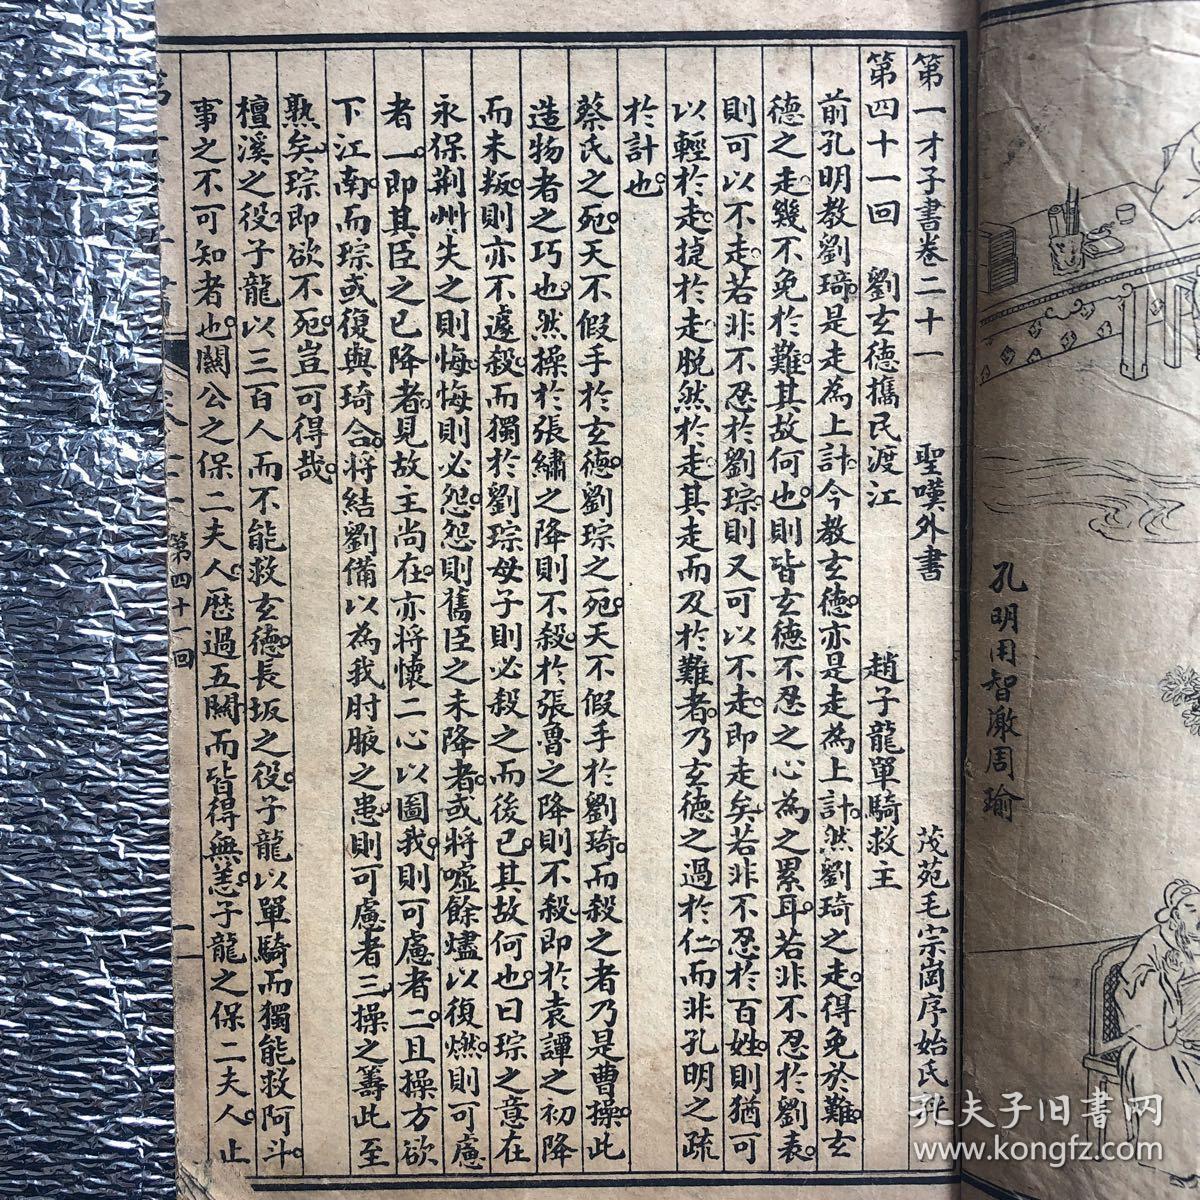 孔明用智激周瑜
第一才子書卷二十一　聖嘆外書　茂苑毛宗崗序始氏評
第四十一回　劉玄德攜民渡江　趙子龍單騎救主
前孔明教劉琦。是走為上計。今教玄德。亦是走為上計。然劉琦之走。得免於難。玄
德之走。幾不免於難。其故何也。則皆玄德不忍之心為之累耳。若非不忍於劉表。
則可以不走。若非不忍於劉琮。則又可以不走。即走矣。若非不忍於百姓。則猶可
以輕於走。捷於走。脫然於走。其走而及於難者。乃玄德之過於仁。而非孔明之疏
於計也。
蔡氏之死。天不假手於玄德。劉琮之死。天不假手於劉琦。而殺之者乃是曹操。此
造物者之巧也。然操於張繡之降則不殺。於張魯之降則不殺。即於袁譚之初降
而未叛。則亦不遽殺。而獨於劉琮母子則必殺之而後已。其故何也。曰琮之意在
永保荊州。失之則悔。悔則必怨。怨則舊臣之未降者。或將噓餘燼以復燃。則可慮
者一。即其臣之已降者。見故主尚在。亦將懷二心以圖我。則可慮者二。且操方欲
下江南。而琮或復與琦合。將結劉備以為我肘腋之患。則可慮者三。操之籌此至
熟矣。琮即欲不死。豈可得哉。
檀溪之役。子龍以三百人而不能救玄德。長坂之役。子龍以單騎而獨能救阿斗。
事之不可知者也。關公之保二夫人。歷過五關而皆得無恙。子龍之保二夫人。止
第四十一回
孔夫子旧書网
www.kongfz.com